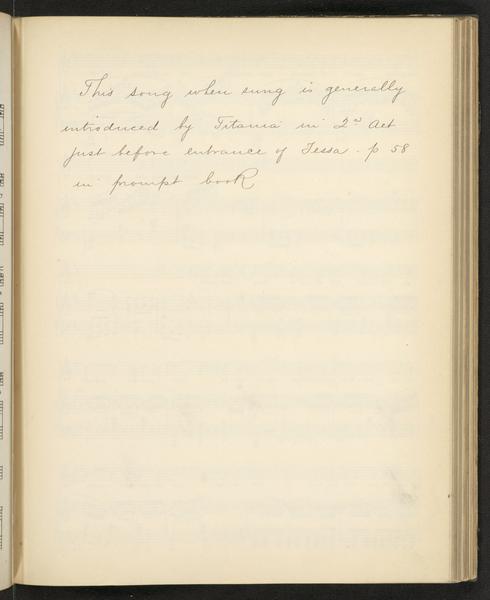 This song when sung is generally
introduced by Titania in 2nd Act
just before entrance of Tessa. p 58
in prompt book